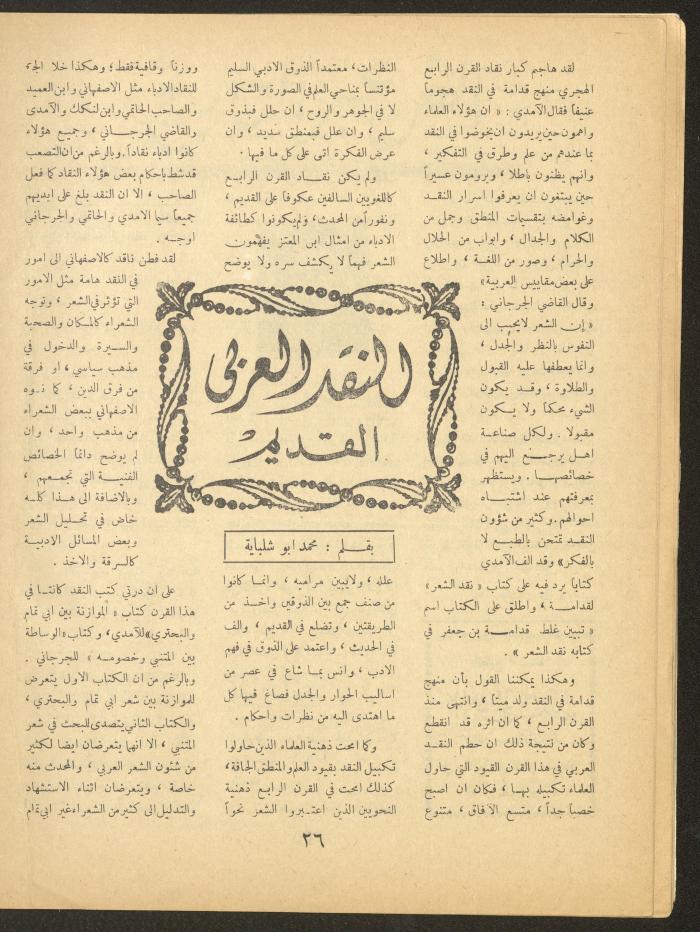 لقد هاجم كبار نقاد القرن الرابع
الهجري منهج قدامة في النقد هجوما
عنيفاً فقال الآمدي : « ان هؤلاء العلماء
واهمون حين يريدون ان يخوضوا في النقد
بما عندهم من علم وطرق في التفكير ،
وانهم يظنون باطلا ، ويرومون عسيراً
حين يبتغون ان يعرفوا اسرار النقد
وغوامضه بتقسيمات المنطق وجمل من
الكلام والجدال ، وابواب من الحلال
والحرام ، وصور من اللغة ، واطلاع
على بعض مقاييس العربية»
وقال القاضي الجرجاني :
« إن الشعر لا يحبب الى
النفوس بالنظر والجدل ،
وانما يعطفها عليه القبول
والطلاوة ، وقد يكون
الشيء محكما ولا يكون
مقبولا . ولكل صناعة
اهل يرجع اليهم في
خصائصها . ويستظهر
بمعرفتهم عند اشتباه
احوالهم . وكثير من شؤون
النقد تمتحن بالطبع لا
بالفكر» وقد الف الآمدي
كتاباً يرد فيه على كتاب « نقد الشعر»
لقدامة ، واطلق على الكتاب اسم
« تبيين غلط قدامة بن جعفر في
كتابه نقد الشعر » .
وهكذا يمكننا القول بأن منهج
قدامة في النقد ولد ميتاً ، وانتهى منذ
القرن الرابع ، كما ان اثره قد انقطع
وكان من نتيجة ذلك ان حطم النقد
العربي في هذا القرن القيود التي حاول
العلماء تكبيله بها ، فكان ان اصبح
خصباً جداً ، متسع الآفاق ، متنوع
النظرات ، معتمداً الذوق الادبي السليم
مؤتنساً بمناحي العلم في الصورة والشكل
لا في الجوهر والروح ، ان حلل فبذوق
سليم ، وان علل فبمنطق سديد ، وان
عرض الفكرة اتى على كل ما فيها .
ولم يكن نقاد القرن الرابع
كاللغويين السالفين عكوفاً على القديم ،
ونفوراً من المحدث، ولم يكونوا كطائفة
الادباء من امثال ابن المعتز يفهمون
الشعر فهماً لا يكشف سره ولا يوضح
النقد العربي
القديم
بقلم : محمد ابو شلباية
علله ، ولا يبين مراميه ، وانما كانوا
من صنف جمع بين الذوقين واخذ من
الطريقتين ، وتضلع في القديم ، والف
في الحديث ، واعتمد على الذوق في فهم
الادب ، وانس بما شاع في عصر من
اساليب الحوار والجدل فصاغ فيها كل
ما اهتدى اليه من نظرات واحكام .
وكما امحت ذهنية العلماء الذين حاولوا
تكبيل النقد بقيود العلم والمنطق الجافة،
كذلك امحت في القرن الرابع ذهنية
النحويين الذين اعتبروا الشعر نحواً
ووزناً وقافية فقط؛ وهكذا خلا الجو
للنقاد الادباء مثل الاصفهاني وابن العميد
والصاحب الحاتمي وابن لنكك والآمدى
والقاضي الجرجاني ، وجميع هؤلاء
كانوا ادباء نقاداً. وبالرغم من ان التصعب
قد شط باحكام بعض هؤلاء النقاد كما فعل
الصاحب ، الا ان النقد بلغ على ايديهم
جميعاً سيما الامدي والحاتمي والجرجاني
اوجه .
لقد فطن ناقد كالاصفهاني الى امور
في النقد هامة مثل الامور
التي تؤثر في الشعر ، وتوجه
الشعراء كالمكان والصحبة
والسيرة والدخول في
مذهب سياسي ، او فرقة
من فرق الدين ، كما نوه
الاصفهاني ببعض الشعراء
من مذهب واحد ، وان
لم يوضح دائماً الخصائص
الفنية التي تجمعهم ،
وبالاضافة الى هذا كله
خاض في تحليل الشعر
وبعض المسائل الادبية
كالسرقة والاخذ .
على ان درتي كتب النقد كانتا في
هذا القرن كتاب « الموازنة بين ابي تمام
والبحتري»للآمدي، وكتاب«الوساطة
بين المتنبي وخصومه » للجرجاني .
وبالرغم من ان الكتاب الاول يتعرض
للموازنة بين شعر ابي تمام والبحتري ،
والكتاب الثاني يتصدى للبحث في شعر
المتنبي ، الا انهما يتعرضان ايضا لكثير
من شئون الشعر العربي ، والمحدث منه
خاصة ، ويتعرضان اثناء الاستشهاد
والتدليل الى كثير من الشعراء غير ابي تمام
٢٦